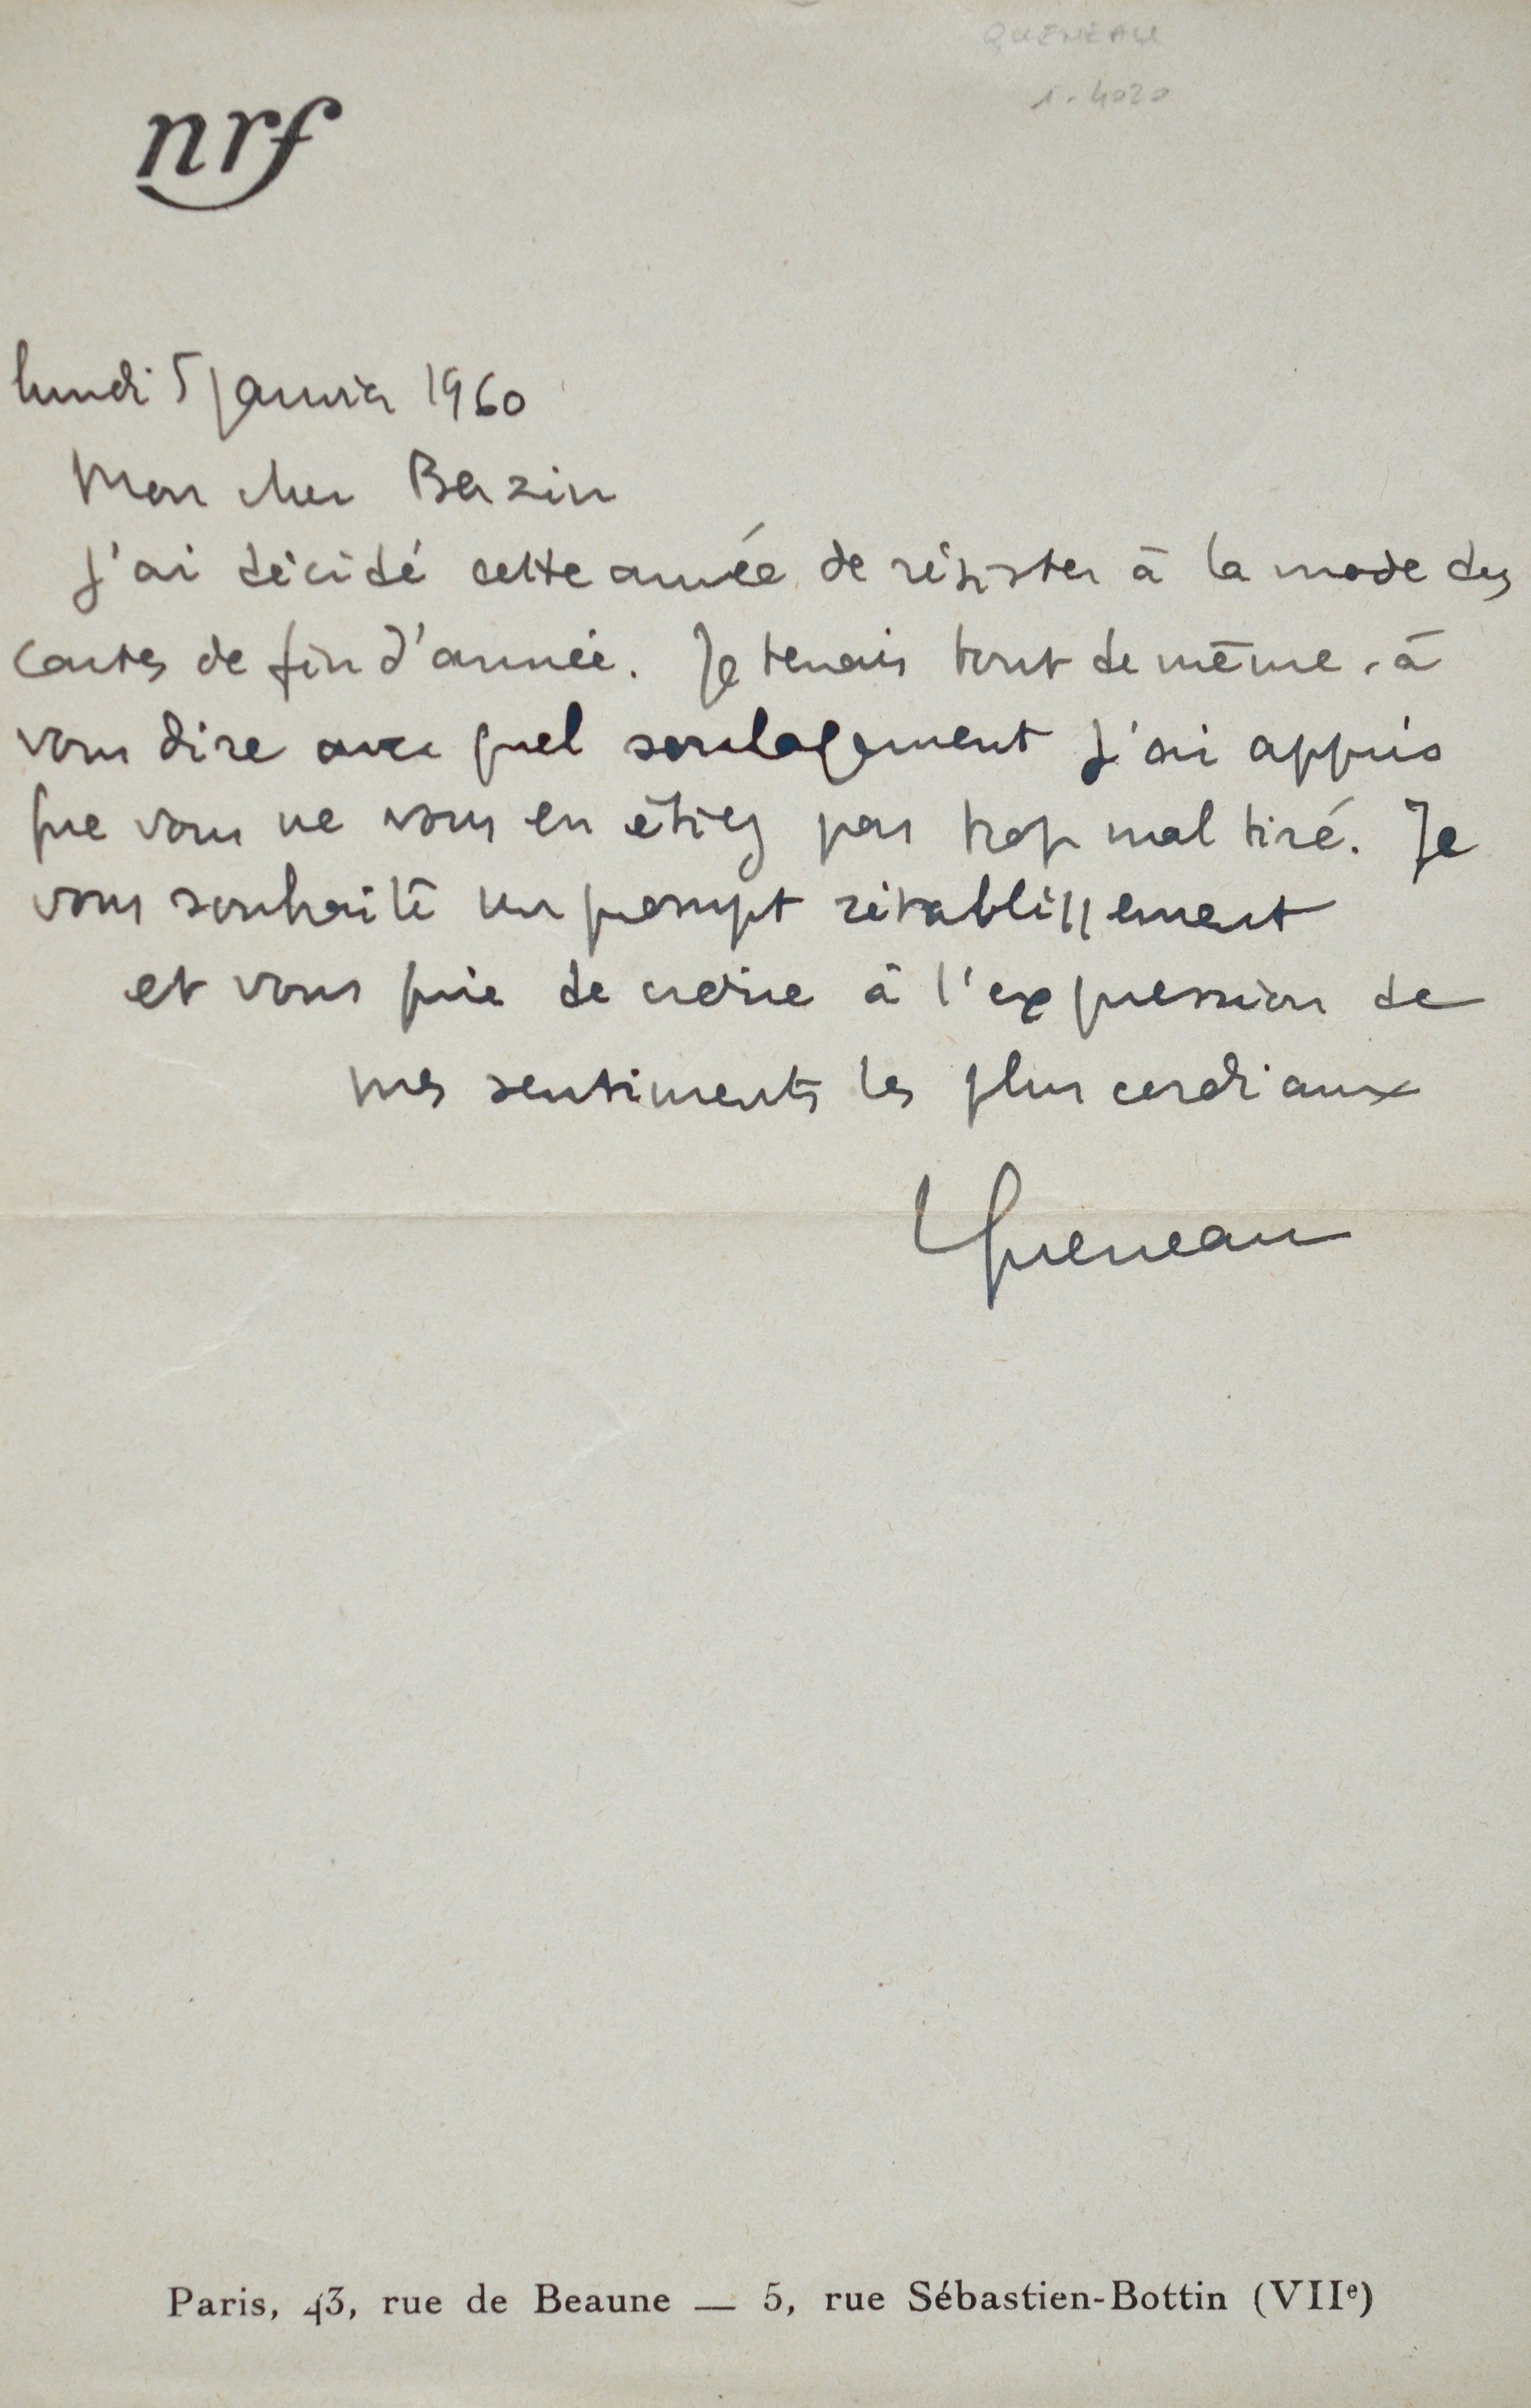 QUENEAU
1.4020
nrf
lundi 5 janvier 1960
Mon cher Bazin
J'ai décidé cette année de résister à la mode des
cartes de fin d'année. Je tenais tout de même à
vous dire avec quel soulagement j'ai appris
que vous ne vous en étiez pas trop mal tiré. Je
vous souhaite un prompt rétablissement
et vous prie de croire à l'expression de
mes sentiments les plus cordiaux
Queneau
Paris, 43, rue de Beaune — 5, rue Sébastien-Bottin (VIIe)